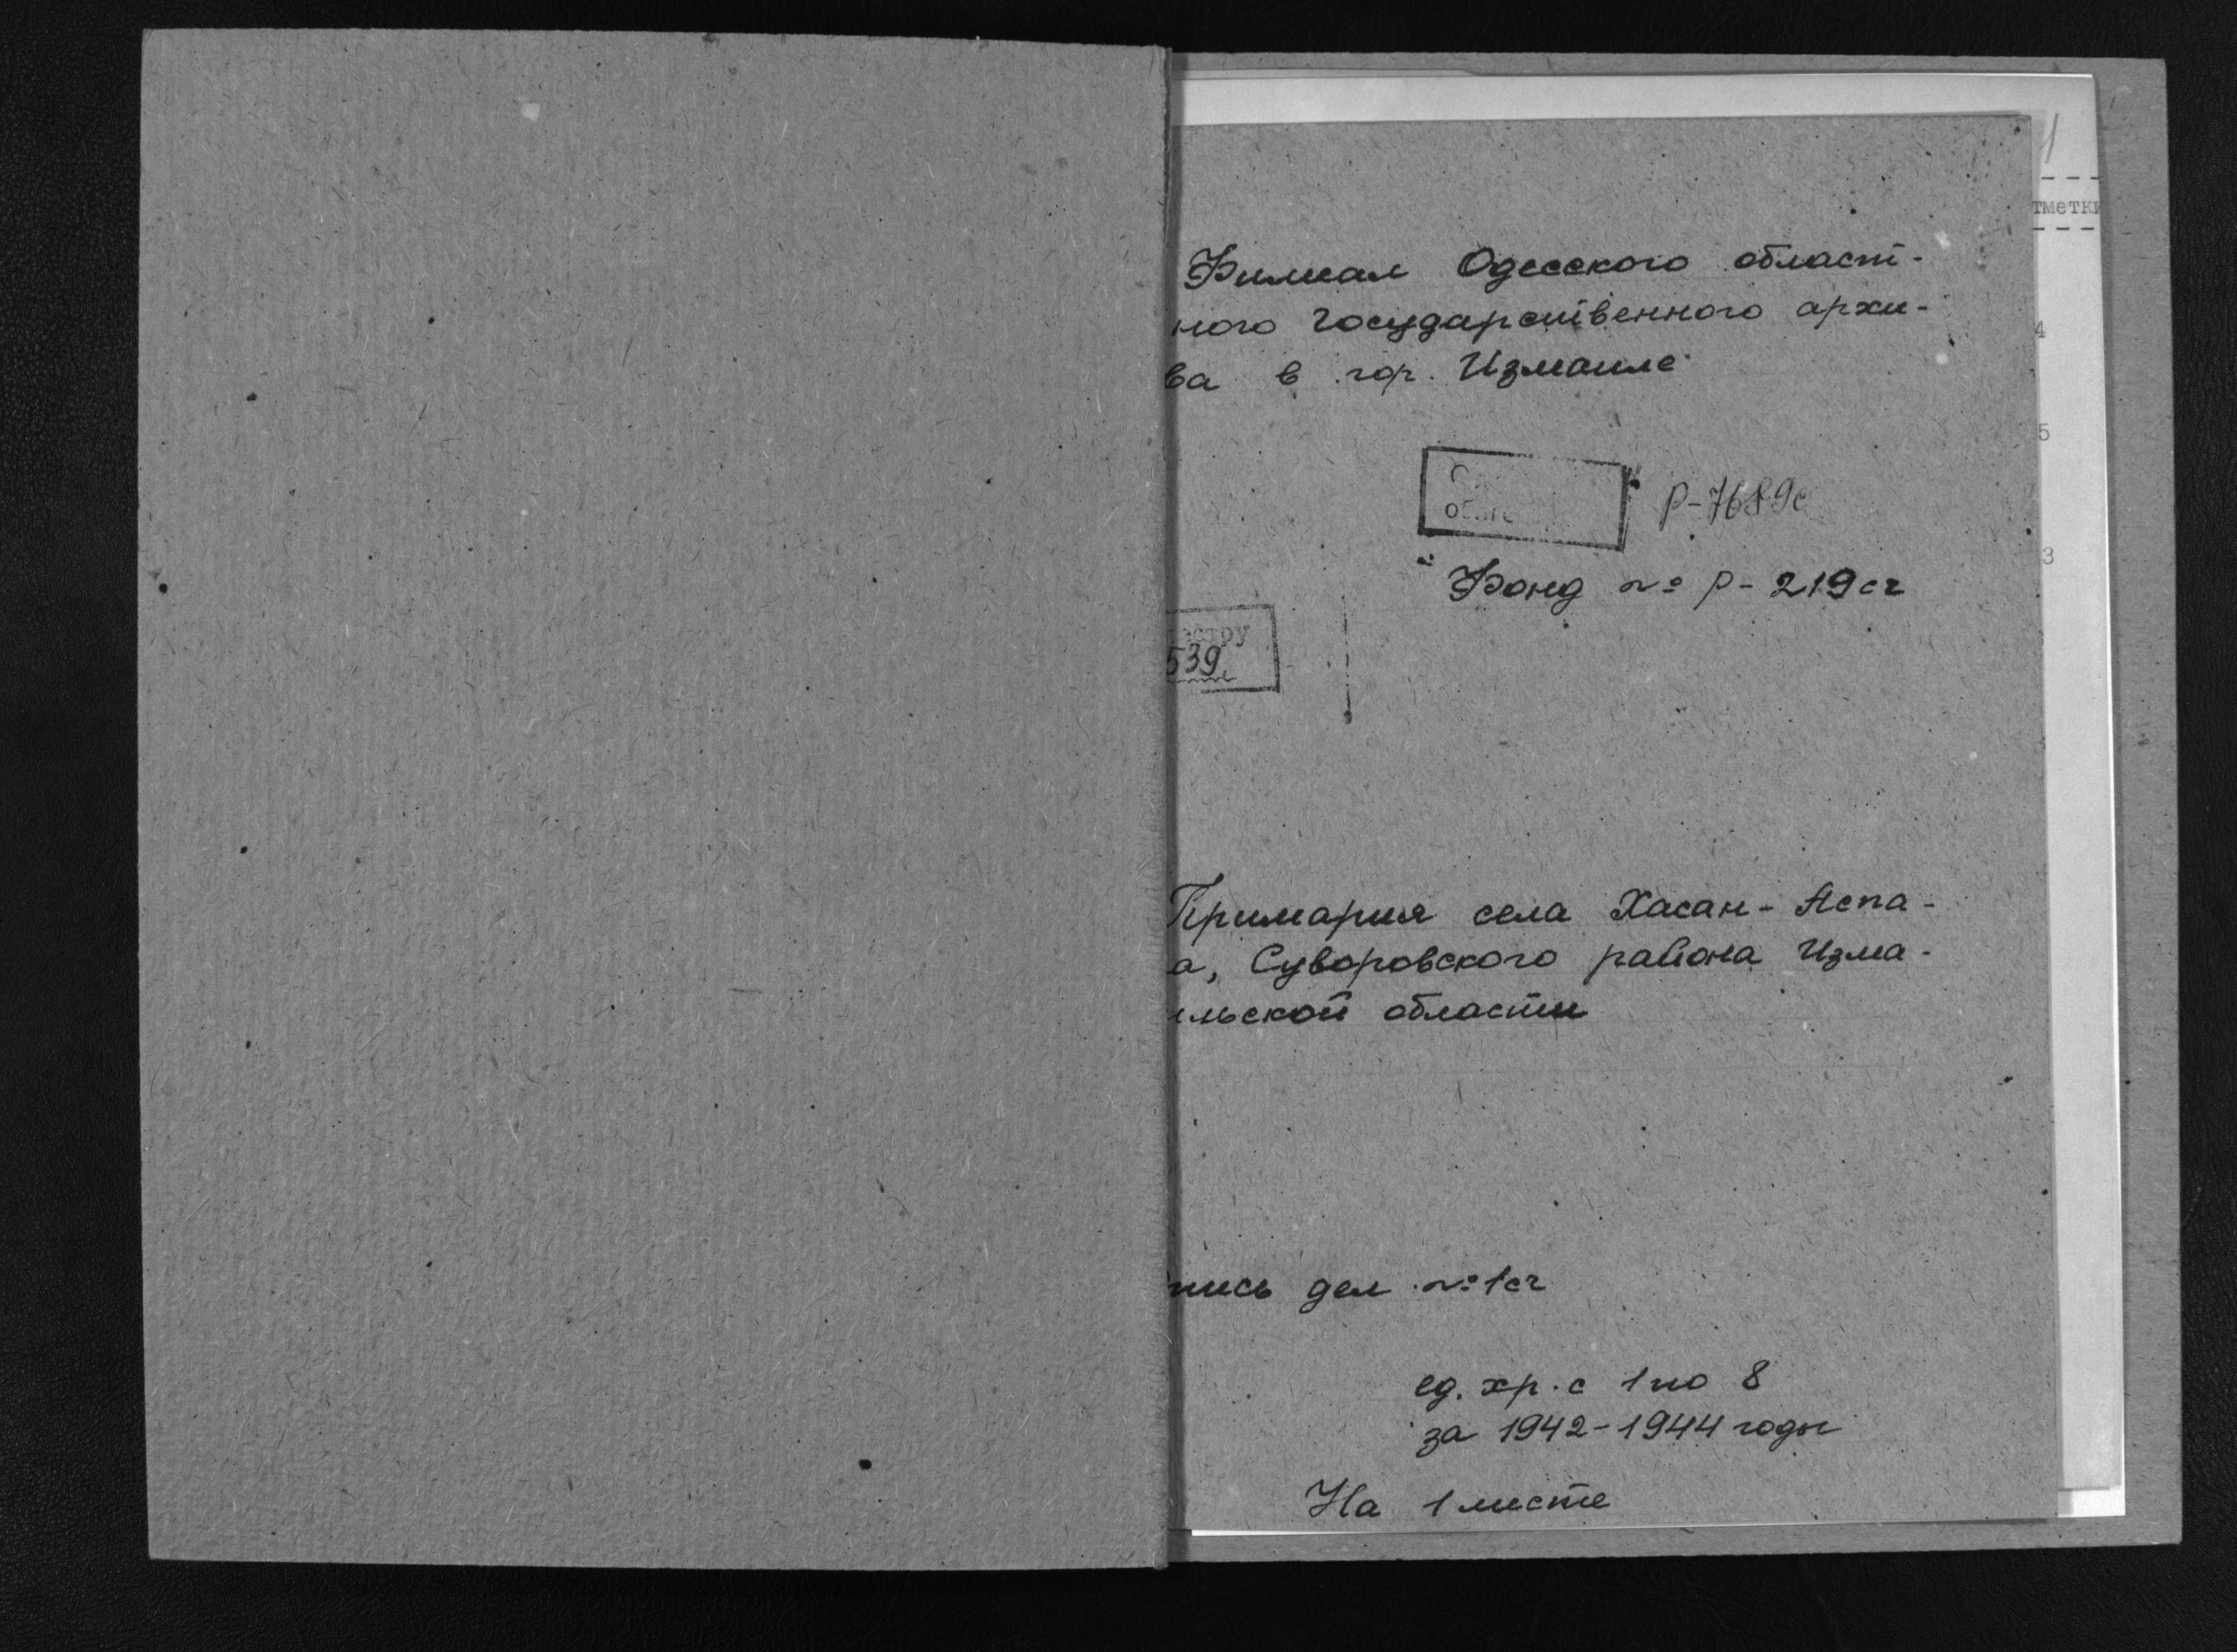 Филиал Одесского област-
ного Государственного архи-
ва в гор. Измаиле
Р-7689с
Фонд № Р-219сч
естру
539
Примария села Хасан-Аспа-
а, Суворовского района Изма-
ильской области
пись дел №1сч
ед. хр. с 1 по 8
за 1942-1944 годы
На 1 листе
1
тметки
4
5
3